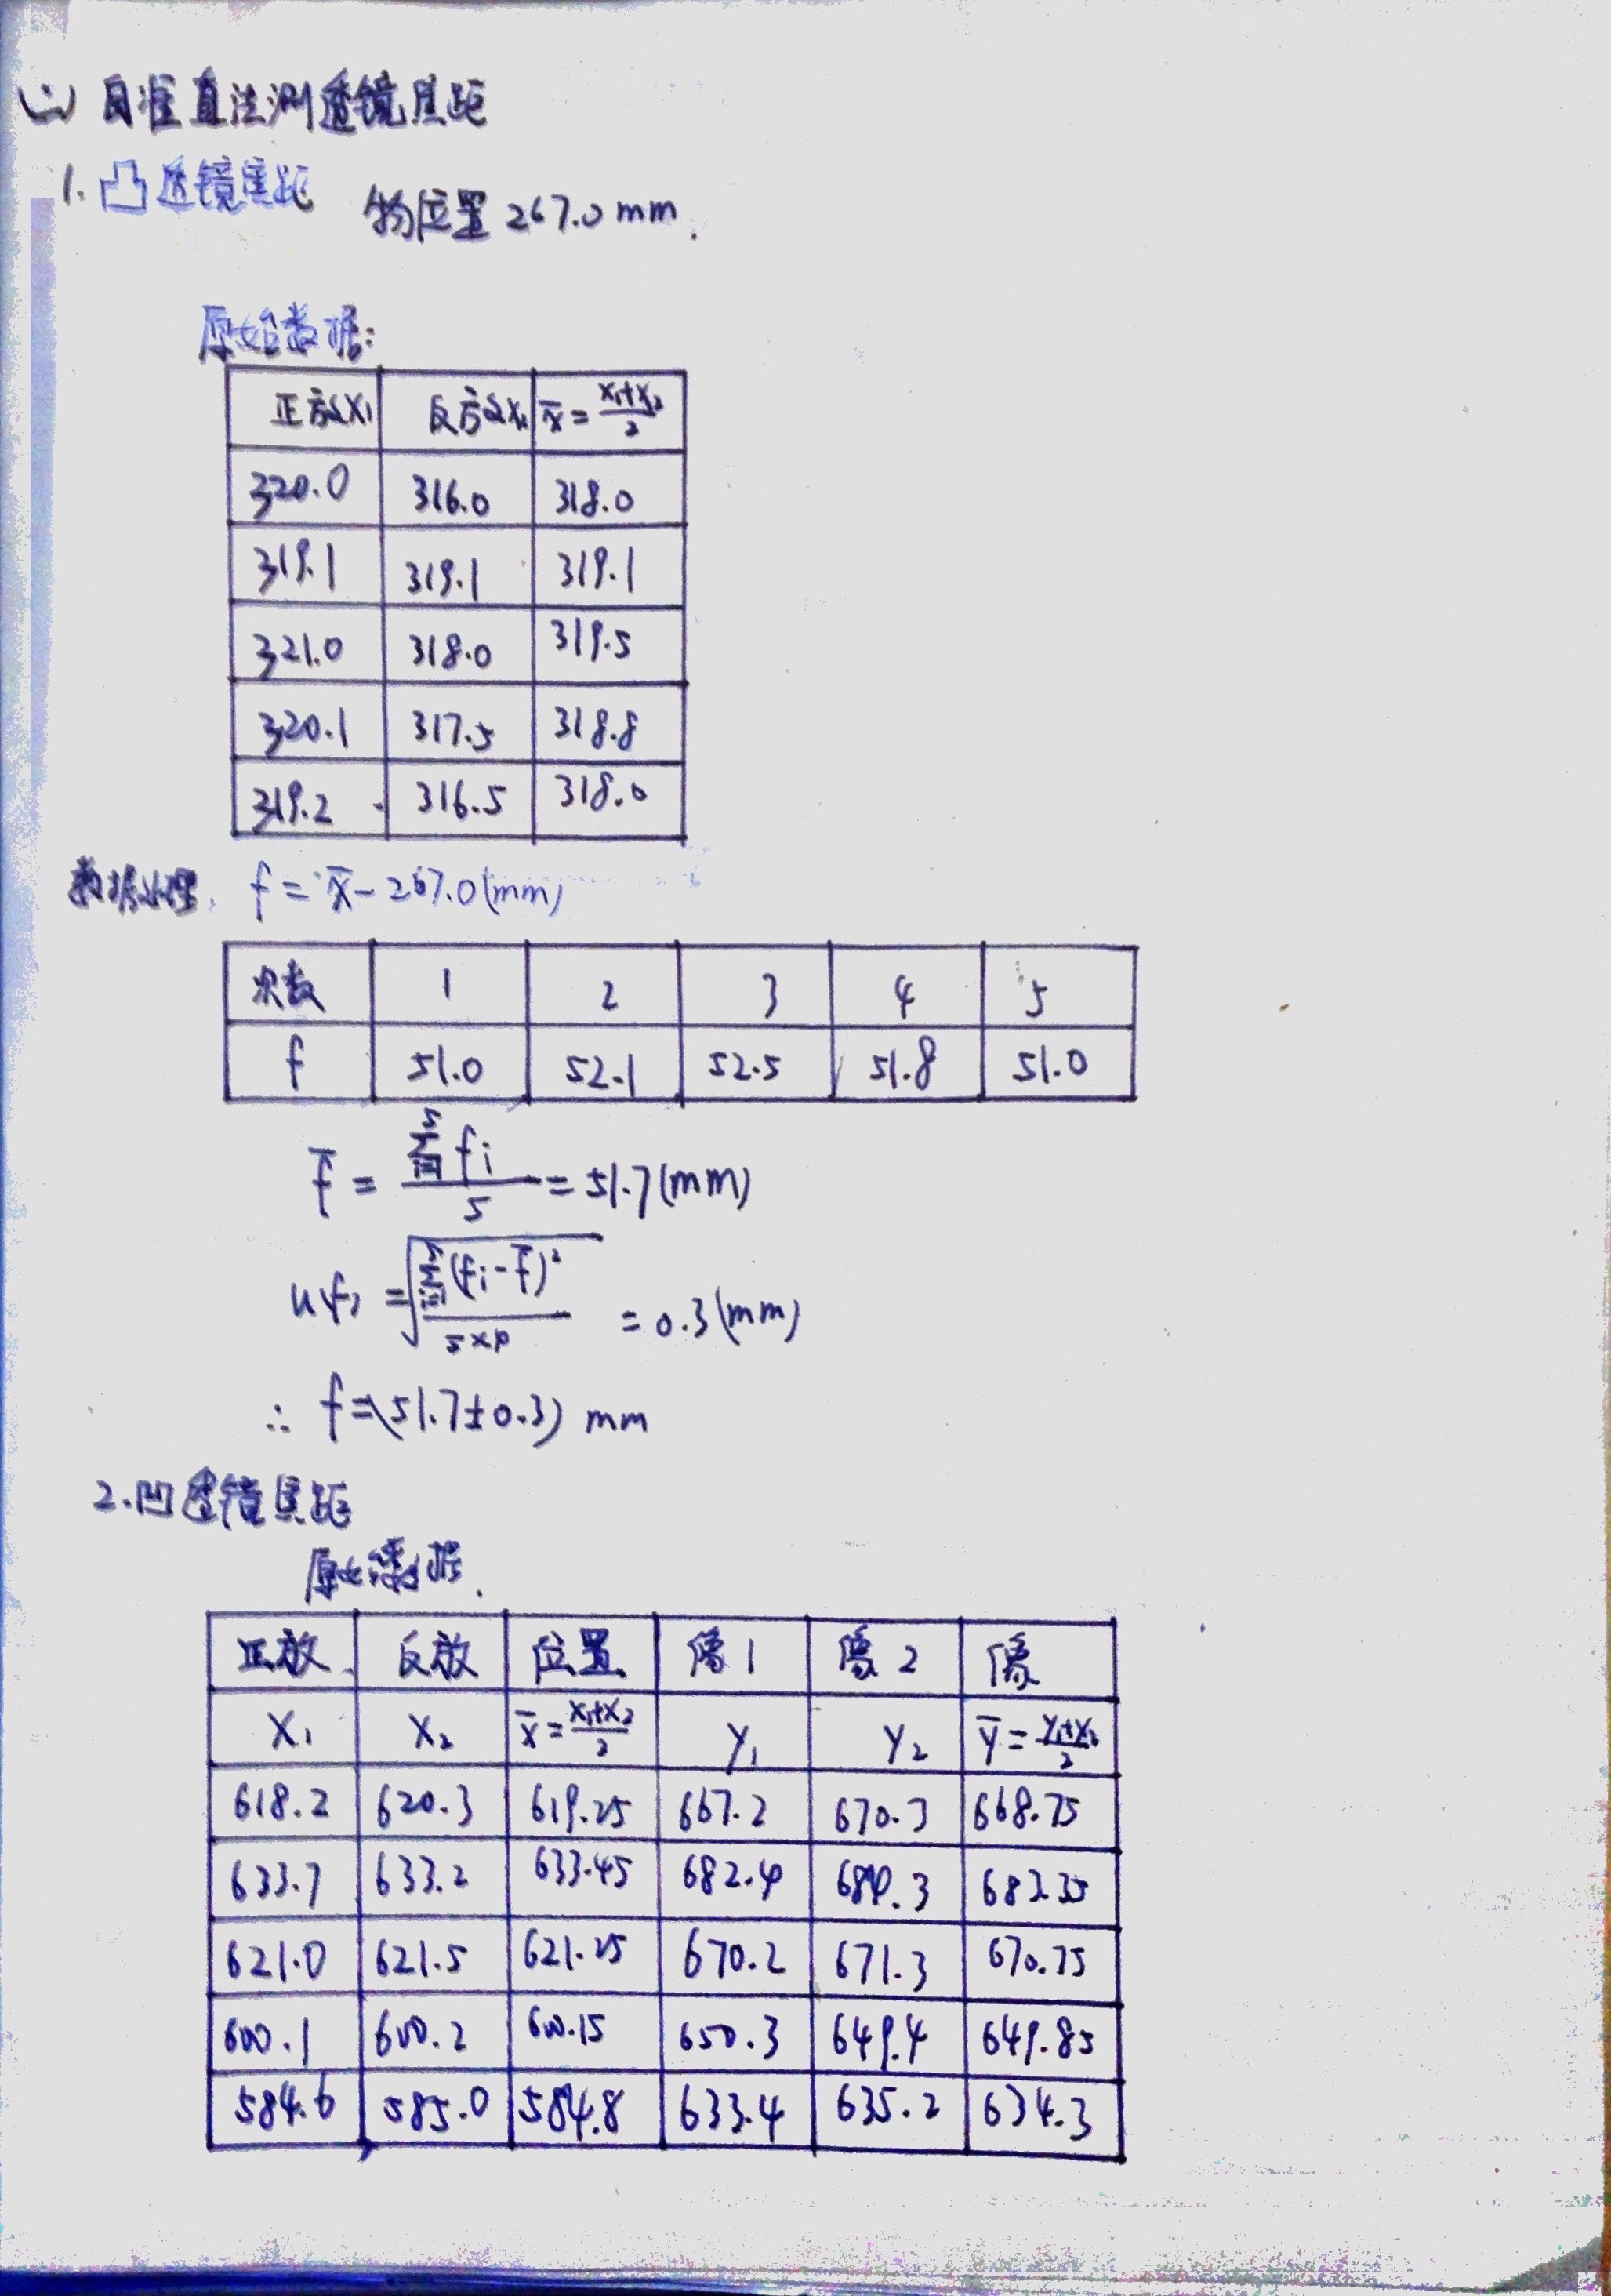 (二) 自准直法测透镜焦距
1. 凸透镜焦距 物位置 267.0 mm.
原始数据:
正放X₁ 反放X₂ x̄ = (x₁+x₂)/2
320.0 316.0 318.0
319.1 319.1 319.1
321.0 318.0 319.5
320.1 317.5 318.8
319.2 316.5 318.0
数据处理. f = x̄ - 267.0(mm)
次数 1 2 3 4 5
f 51.0 52.1 52.5 51.8 51.0
f̄ = (∑_{i=1}^{5} fᵢ)/5 = 51.7(mm)
u(f) = √(∑_{i=1}^{5}(fᵢ-f̄)²/(5×4)) = 0.3(mm)
∴ f=(51.7±0.3) mm
2.凹透镜焦距
原始数据.
正放 反放 位置 像1 像2 像
X₁ X₂ x̄ = (x₁+x₂)/2 y₁ y₂ ȳ = (y₁+y₂)/2
618.2 620.3 619.25 667.2 670.3 668.75
633.7 633.2 633.45 682.4 684.3 682.35
621.0 621.5 621.25 670.2 671.3 670.75
600.1 600.2 600.15 650.3 649.4 649.85
584.6 585.0 584.8 633.4 635.2 634.3